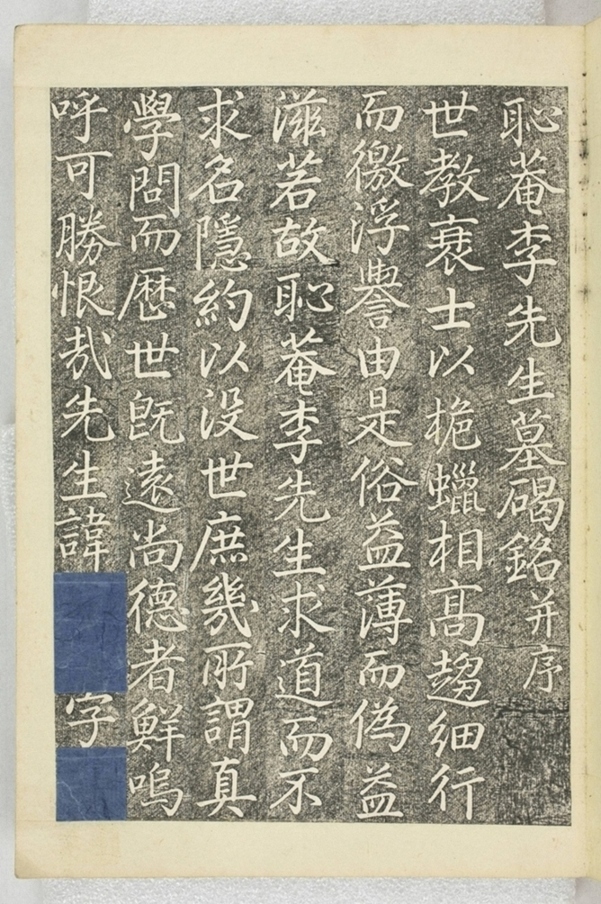 恥菴李先生墓碣銘并序
世教衰士以桅蠟相高趨細行
而徼浮譽由是俗益薄而偽益
滋若故恥菴李先生求道而不
求名隱約以没世庶幾所謂真
學問而歷世既遠尚德者鮮嗚
呼可勝恨哉先生諱字